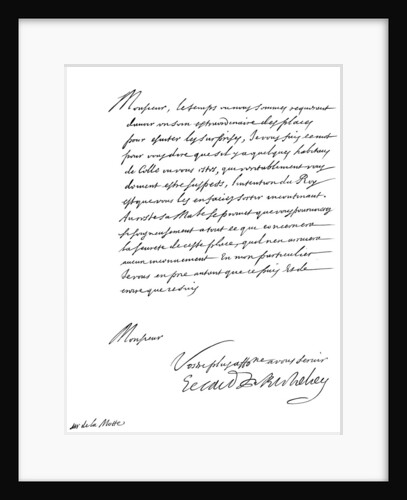 Monsieur, le temps ou nous sommes requirent
davoir un soin extraordinaire des places
pour esuiter les surprises, Je vous fais ce mot
pour vous dire que sil y a quelques habitans
de Celle ou vous estes, qui veritablement vous
doivent estre suspects, l'intention du Roy
est que vous les en faciez sortir incontinant.
Au reste sa Ma.te se promet que vous pouruoirez
sy soigneusement a tout ce qui concernera
la seureté de ceste place, quil nen arrivera
aucun inconvenient En mon particulier
Je vous en prie autant que ce puis Et de
croire que je suis
Monsieur
Vostre plus aff.ne a vous servir
Le Card. de Richelieu
M. de la Motte